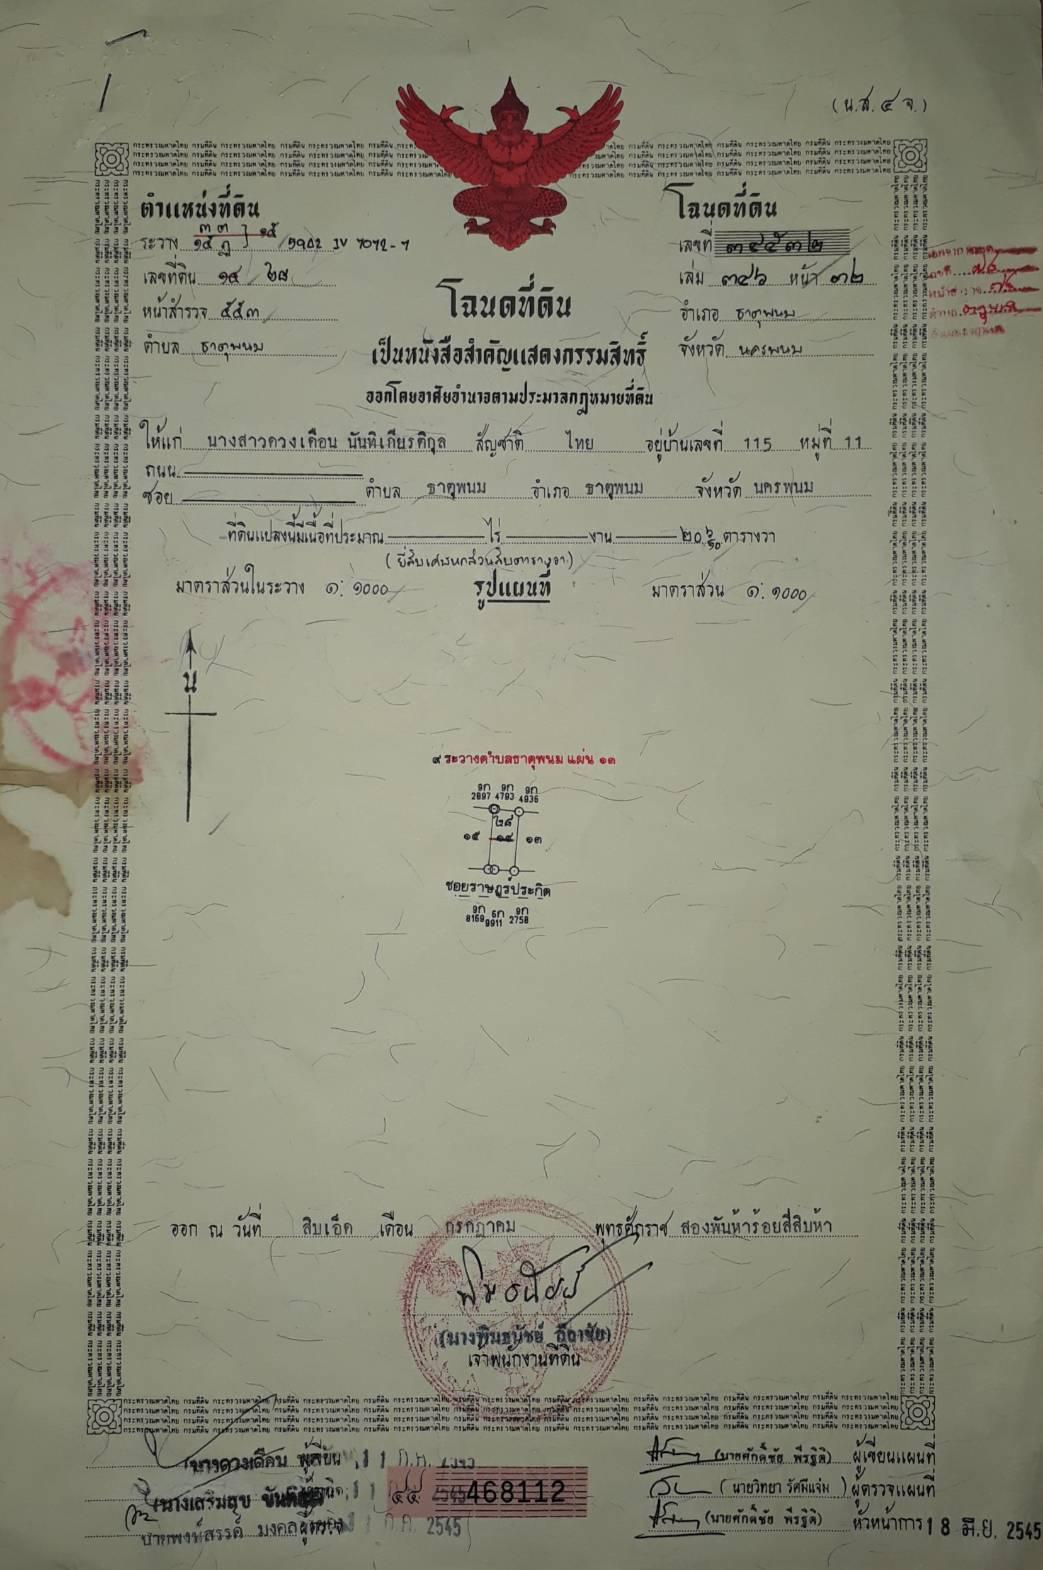 (น.ส.๔ จ.)
ตำแหน่งที่ดิน
ระวาง ๑๕ 5902 IV 7072-7
เลขที่ดิน ๑๔ ๒๘
หน้าสำรวจ ๕๕๓
ตำบล ธาตุพนม
โฉนดที่ดิน
เลขที่ ๓๔๕๓๒
เล่ม ๓๔๖ หน้า ๓๒
อำเภอ ธาตุพนม
จังหวัด นครพนม
โฉนดที่ดิน
เป็นหนังสือสำคัญแสดงกรรมสิทธิ์
ออกโดยอาศัยอำนาจตามประมวลกฎหมายที่ดิน
ให้แก่ นางสาวดวงเดือน นันทิเกียรติกุล สัญชาติ ไทย อยู่บ้านเลขที่ 115 หมู่ที่ 11
ถนน
ซอย ตำบล ธาตุพนม อำเภอ ธาตุพนม จังหวัด นครพนม
ที่ดินแปลงนี้มีเนื้อที่ประมาณ ไร่ งาน ๒๐ ๖/๑๐ ตารางวา
(ยี่สิบเศษหกส่วนสิบตารางวา)
มาตราส่วนในระวาง ๑:๑๐๐๐ รูปแผนที่ มาตราส่วน ๑:๑๐๐๐
น
ระวางตำบลธาตุพนม แผ่น ๑๓
9ก 9ก 9ก
2897 4793 4936
๒๘
๑๕ ๑๔ ๑๓
ซอยราษฎร์ประกิต
9ก 6ก 9ก
8169 9911 2758
ออก ณ วันที่ สิบเอ็ด เดือน กรกฎาคม พุทธศักราช สองพันห้าร้อยสี่สิบห้า
เจ้าพนักงานที่ดิน
นางดวงเดือน 11 ก.ค. 2545
(นายศักดิ์ชัย พีรฐิติ) ผู้เขียนแผนที่
นางเสริมสุข ๔๕ 468112
(นายวิทยา รัศมีแจ่ม) ผู้ตรวจแผนที่
นายพงษ์สรรค์ มงคล 11 ก.ค. 2545
(นายศักดิ์ชัย พีรฐิติ) หัวหน้าการ 18 มิ.ย. 2545